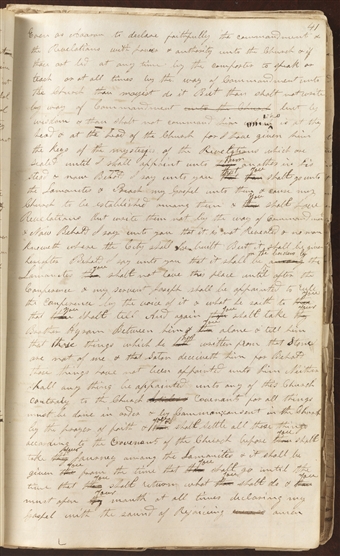 41
Even as Aaron to declare faithfully the commandment &
the Revelations with power & authority unto the Church & if
thou art led at any time by the comforter to speak or
teach or at all times by the way of Commandment unto
the Church thou mayest do it But thou shalt not write
by way of Commandment unto the Church but by
wisdom & thou shalt not command him who is at thy
head & at the head of the Church for I have given him
the keys of the mysteries of the Revelations which are
sealed until I shall appoint unto them another in his
sted & now Behold I say unto you that you shall go unto
the Lamanites & Preach my Gospel unto them & cause my
Church to be established among them & shall have
Revelations but write them not by the way of Commandment
& Now Behold I say unto you that it is not Revealed & no man
knoweth where the City shall be built But it shall be given
hereafter Behold I say unto you that it shall be on the borders by
the Lamanites shall not leave this place until after the
Conference & my servent Joseph shall be appointed to rule
the Conference by the voice of it & what he saith to you
that you shall tell And again you shall take thy
Brother Hyram between him & you alone & tell him
that those things which he hath written from that Stone
are not of me & that Satan deceiveth him for Behold
those things have not been appointed unto him Neither
shall any thing be appointed unto any of this Church
contrary to the Church Covenant for all things
must be done in order & by Commonconsent in the Church
by the prayer of faith & you shalt settle all these things
according to the Covenant of the Church before you shall
take your Journey among the Lamanites & it shall be
given you from the time that you shall go until the
time that you shall return what you shalt do & you
must open your mouth at all times declaring my
Gospel with the sound of Rejoicing amen